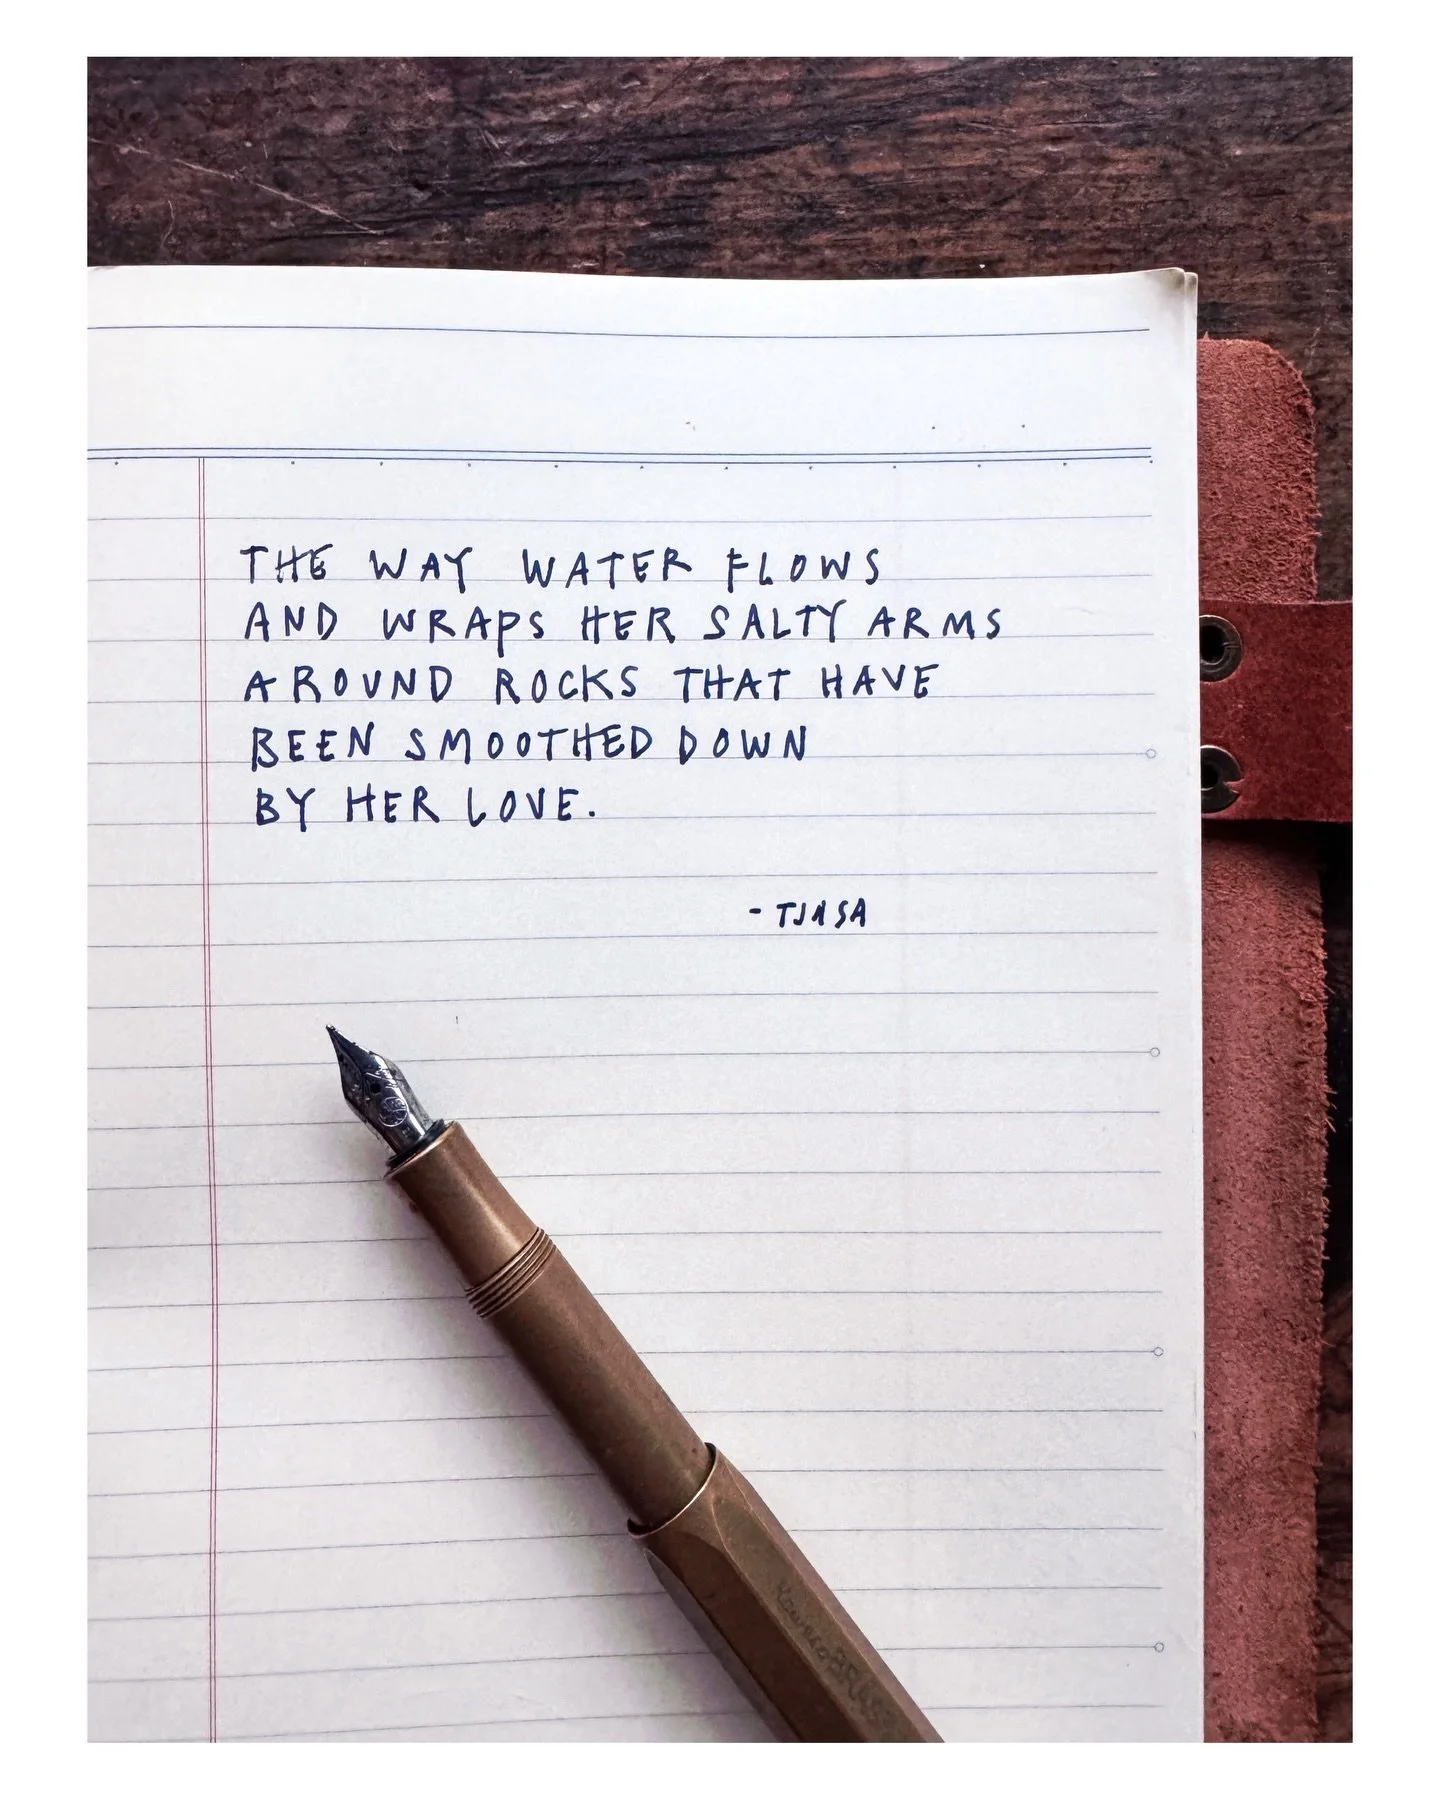 THE WAY WATER FLOWS
AND WRAPS HER SALTY ARMS
AROUND ROCKS THAT HAVE
BEEN SMOOTHED DOWN
BY HER LOVE.
- TJASA